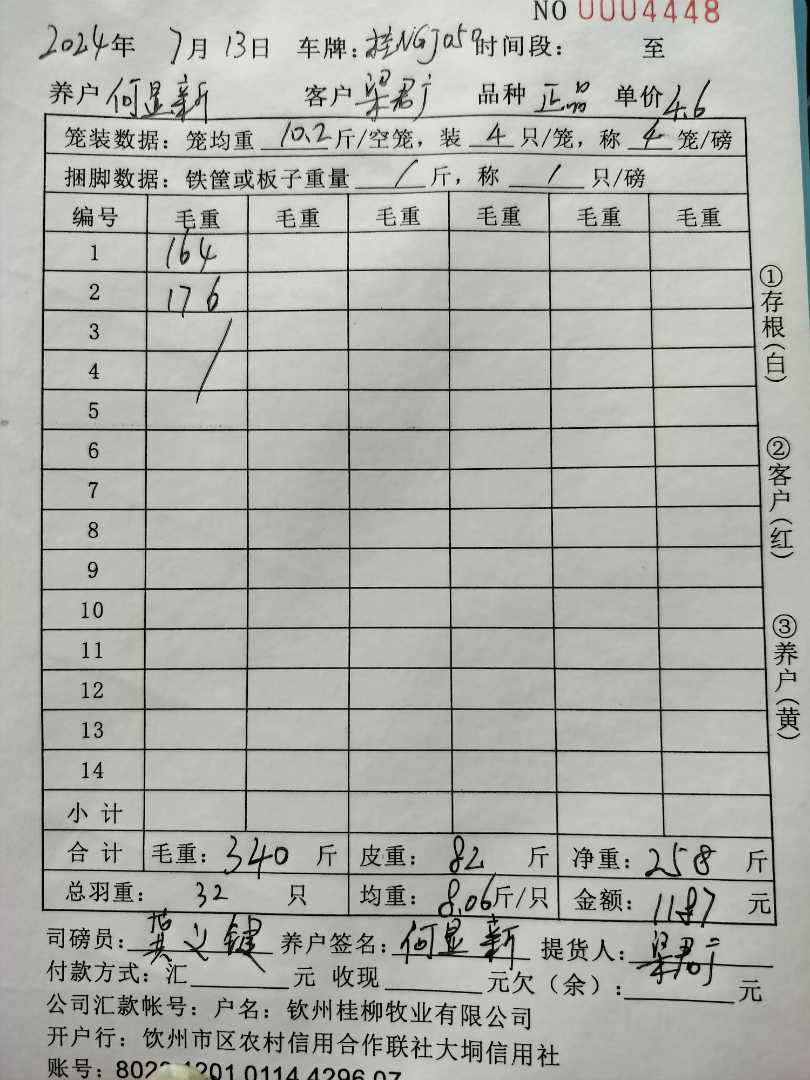 NO 0004448
2024年 7月 13日 车牌：桂NGJ050 时间段： 至
养户 何显新 客户 梁君广 品种 正品 单价 4.6
笼装数据：笼均重 10.2 斤/空笼，装 4 只/笼，称 4 笼/磅
捆脚数据：铁筐或板子重量 / 斤，称 / 只/磅
编号 毛重 毛重 毛重 毛重 毛重 毛重
1 164
2 176
3 /
4
5
6
7
8
9
10
11
12
13
14
小计
合计 毛重：340 斤 皮重：82 斤 净重：258 斤
总羽重：32 只 均重：8.06斤/只 金额：1187 元
司磅员：黄义键 养户签名：何显新 提货人：梁君广
付款方式：汇 元 收现 元欠（余）： 元
公司汇款帐号：户名：钦州桂柳牧业有限公司
开户行：钦州市区农村信用合作联社大垌信用社
账号：802 1201 0114 4296 07
①存根(白)
②客户(红)
③养户(黄)